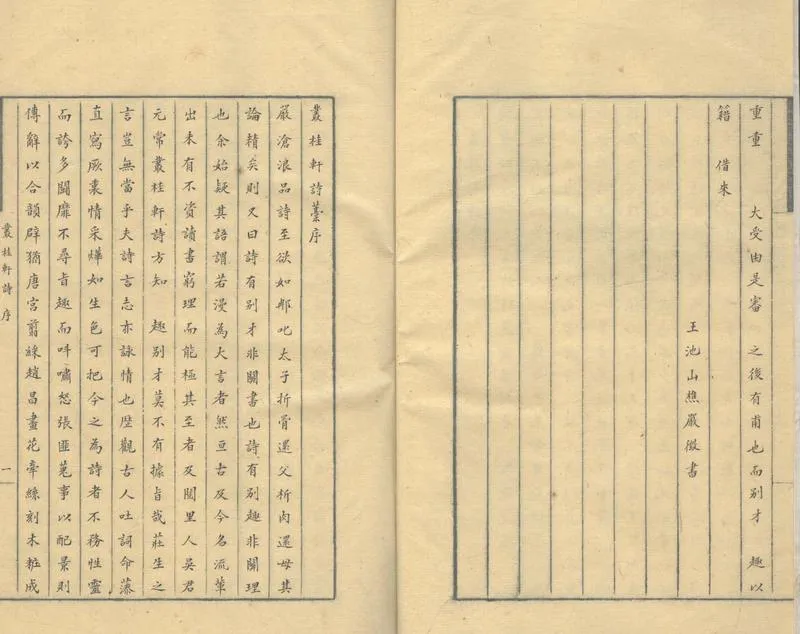 重重　大受由是審　之後有甫也而別才　趣以
籍　借來
王池山樵嚴徵書
叢桂軒詩藳序
嚴滄浪品詩至欲如那叱太子折骨還父析肉還母其
論精矣則又曰詩有別才非關書也詩有別趣非關理
也余始疑其語謂若漫為大言者然亘古及今名流輩
出未有不資讀書窮理而能極其至者及閱里人吳君
元常叢桂軒詩方知　趣別才莫不有據旨哉莊生之
言豈無當乎夫詩言志亦詠情也歷觀古人吐詞命藻
直寫厥衷情采燁如生色可把今之為詩者不務性靈
而誇多鬪靡不尋旨趣而呌嘯怒張匪蒐事以配景則
傳辭以合韻辟猶唐宮翦綵趙昌畫花牽絲刻木粧成
叢桂軒詩　序
一